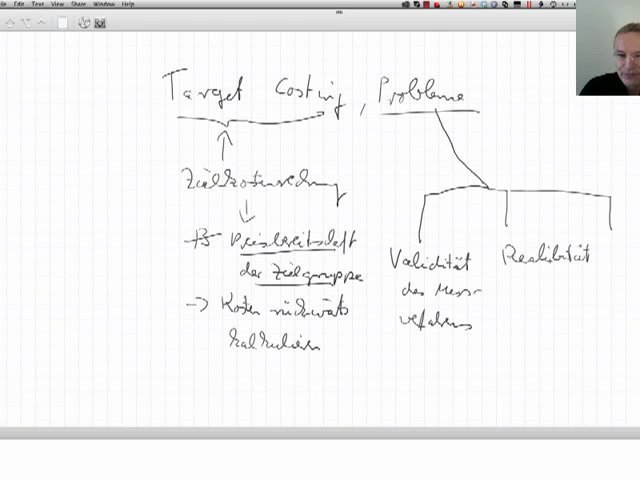 File Edit Text View Share Window Help
Target Costing, Probleme
Zielkostenrechnung
Preisbereitschaft
der Zielgruppe
-> Kosten rückwärts
kalkulieren
Validität
des Mess-
verfahrens
Realibität